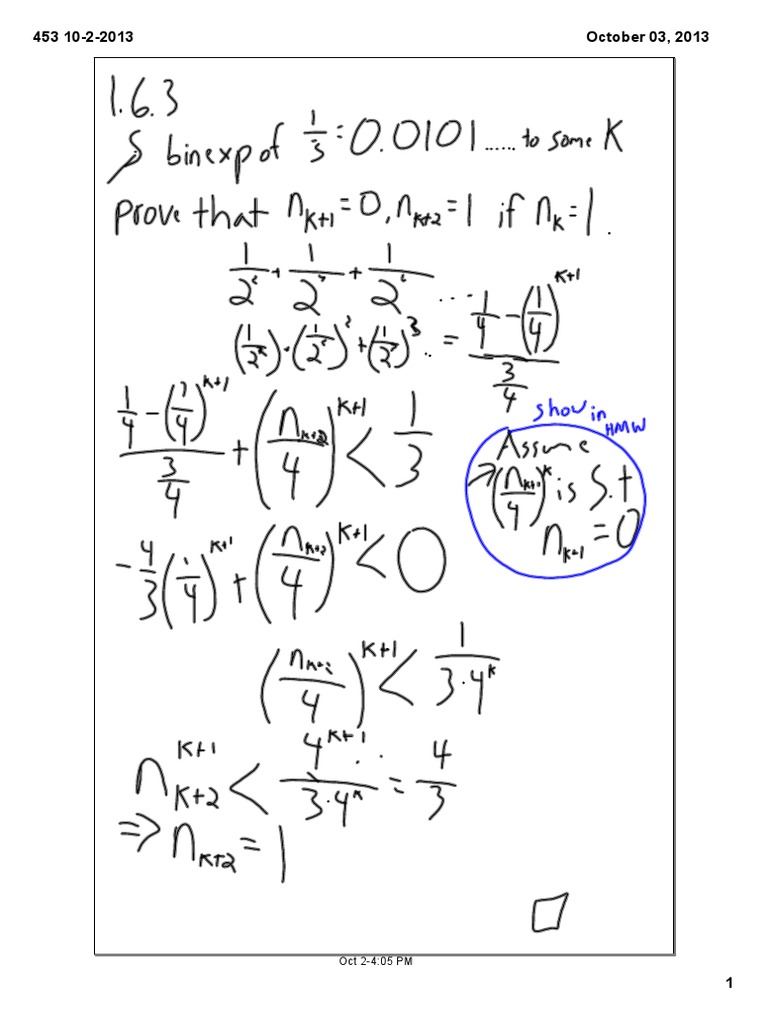 453 10-2-2013 October 03, 2013
1.6.3
S bin exp of 1/3 = 0.0101...... to some K
prove that n_{K+1} = 0, n_{K+2} = 1 if n_K = 1.
1/2 + 1/2 + 1/2 ...
(1/2) + (1/2)^2 + (1/2)^3 .. = (1/4 - (1/4)^{K+1}) / (3/4)
(1/4 - (1/4)^{K+1}) / (3/4) + (n_{K+2}/4)^{K+1} < 1/3
show in HMW
Assume
(n_{K+1}/4)^K is S.t
n_{K+1} = 0
-4/3 (1/4)^{K+1} + (n_{K+2}/4)^{K+1} < 0
(n_{K+2}/4)^{K+1} < 1/(3·4^K)
n_{K+2}^{K+1} < 4^{K+1}/(3·4^K) = 4/3
⇒ n_{K+2} = 1
□
Oct 2-4:05 PM
1